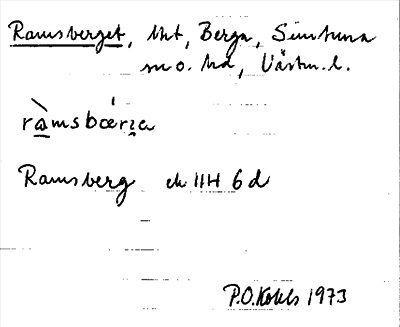 Ramsberget, tht, Berga, Simtuna
sn o. hd, Västm. l.
ràmsbœrɪa
Ramsberg ek IIH 6 d
P.O. 1973